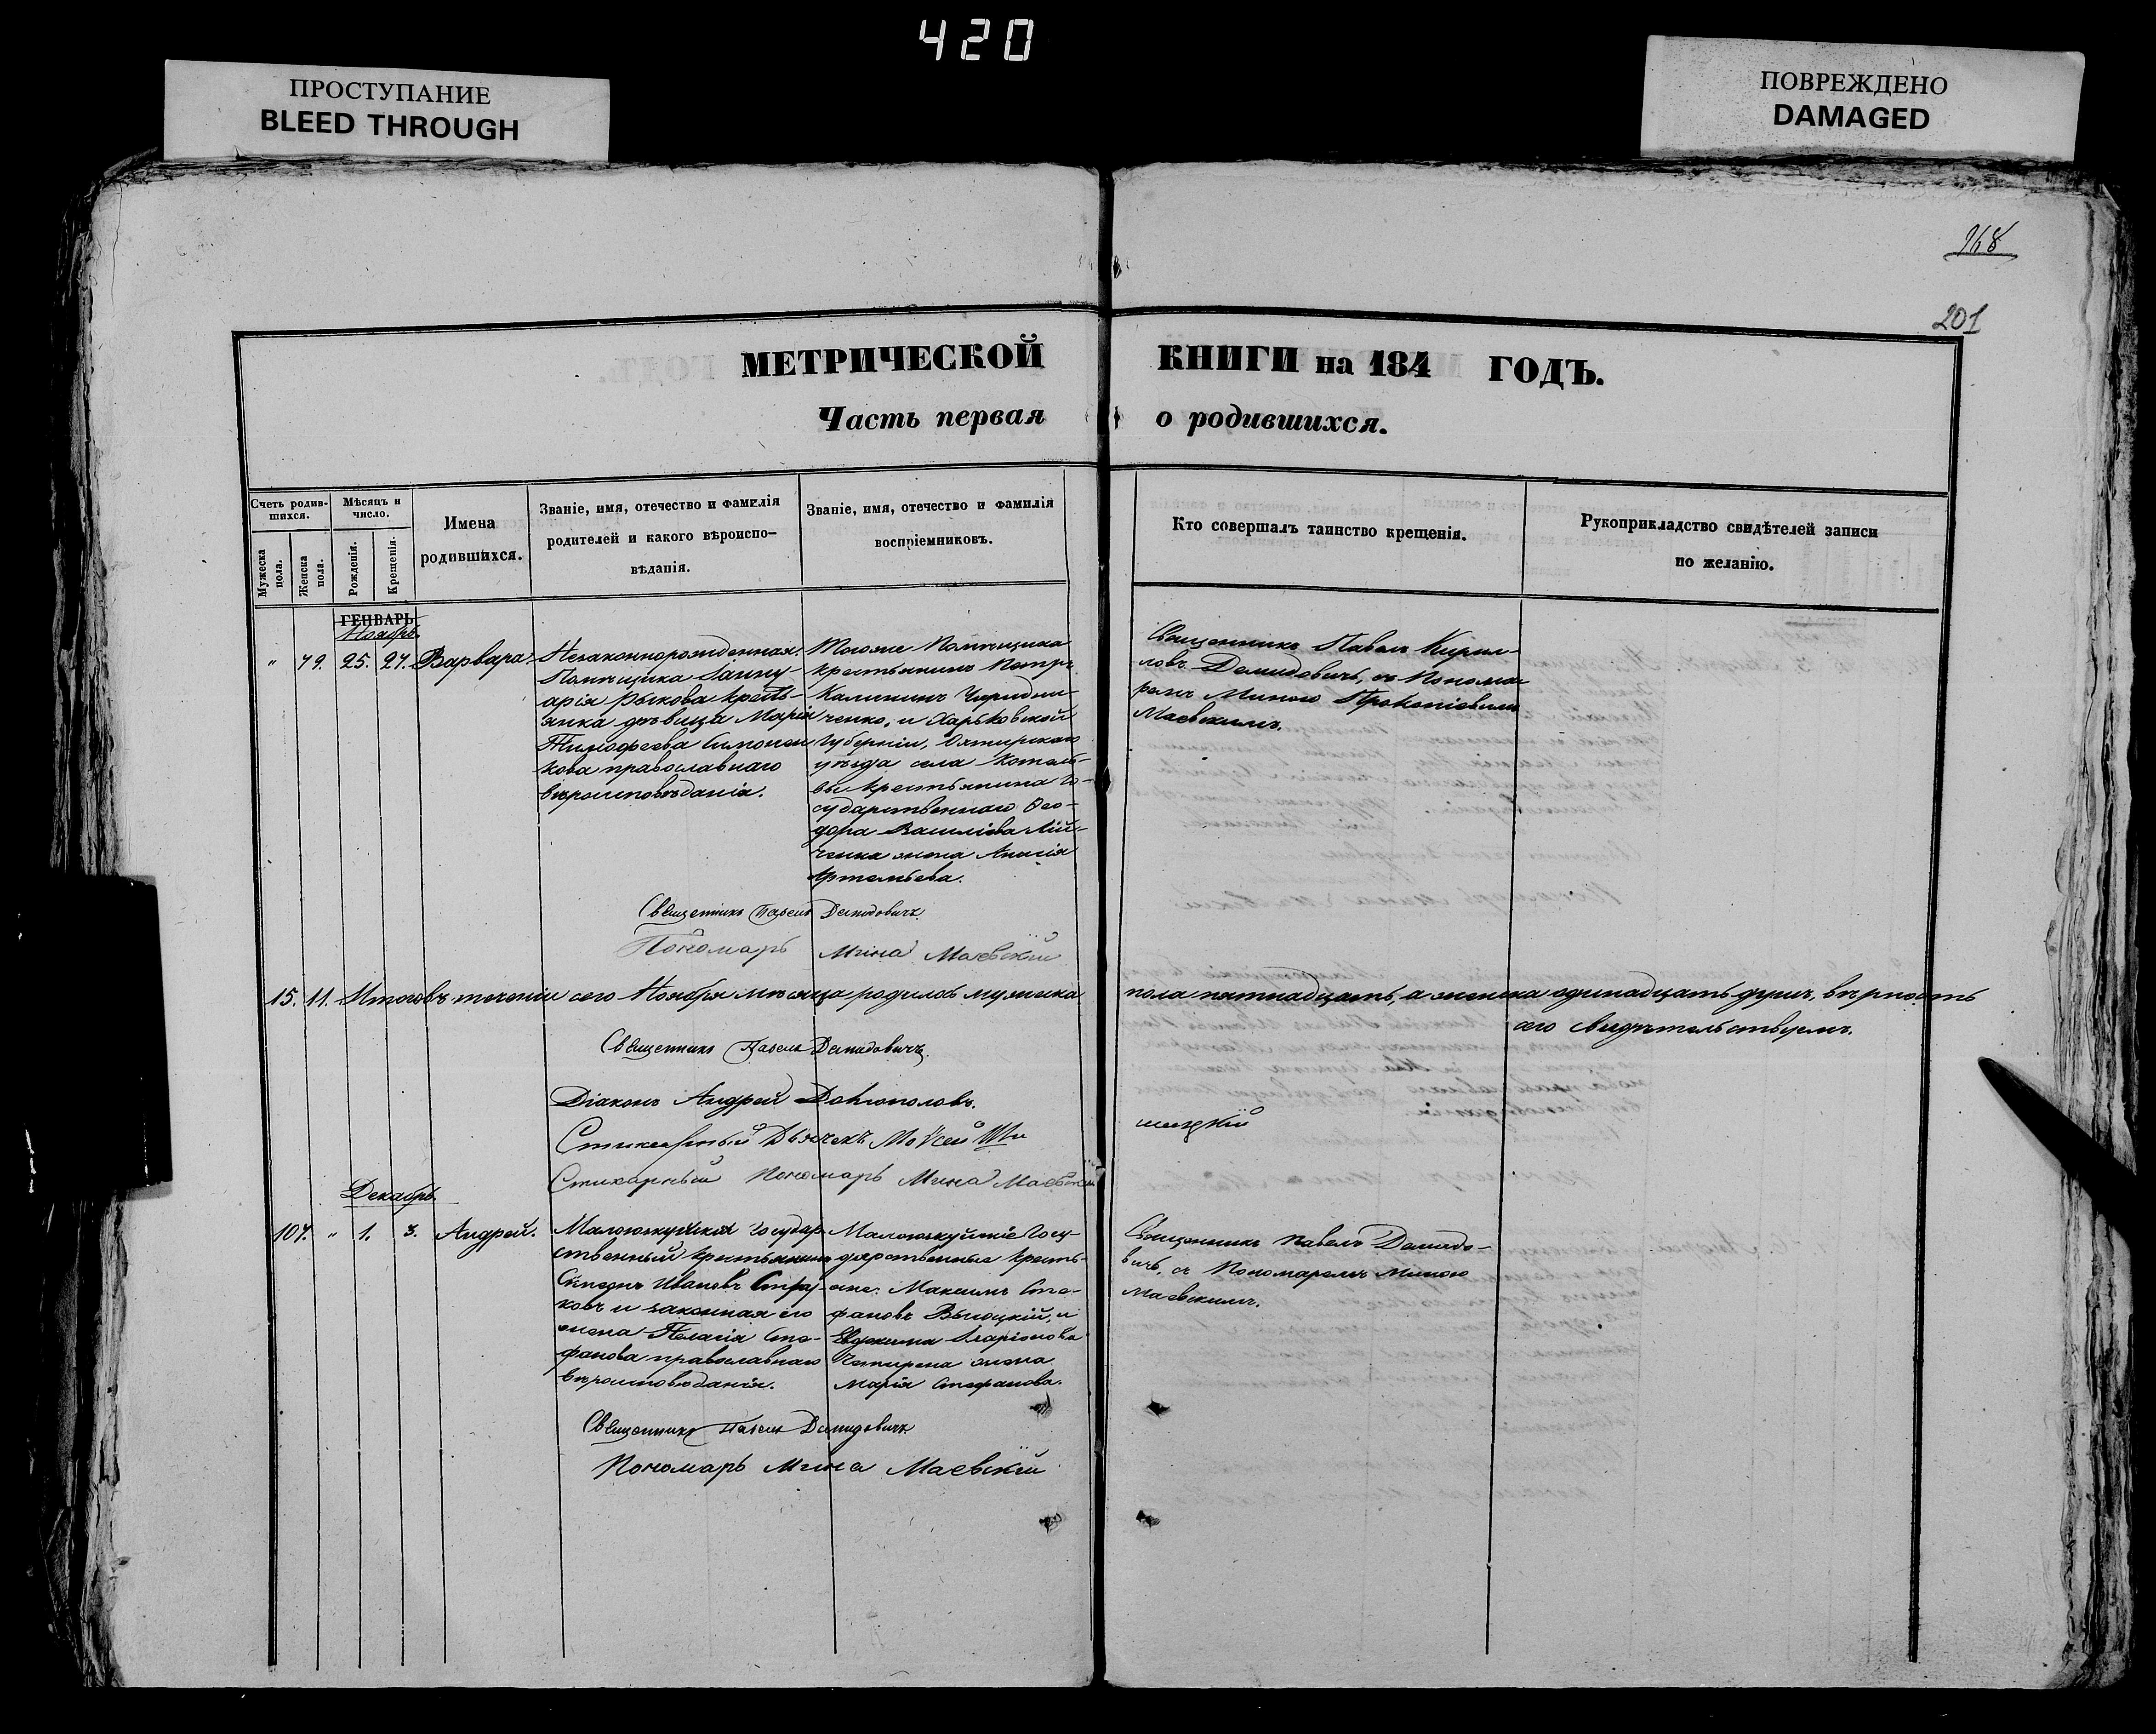 420
ПРОСТУПАНИЕ
BLEED THROUGH
ПОВРЕЖДЕНО
DAMAGED
168
201
МЕТРИЧЕСКОЙ КНИГИ на 184 ГОДЪ.
Часть первая о родившихся.
Счетъ родив-
шихся.
Мужеска пола.
Женска пола.
Мѣсяцъ и
число.
Рожденія.
Крещенія.
Имена
родившихся.
Званіе, имя, отечество и фамилія
родителей и какого вѣроиспо-
вѣданія.
Званіе, имя, отечество и фамилія
воспріемниковъ.
Кто совершалъ таинство крещенія.
Рукоприкладство свидѣтелей записи
по желанію.
ГЕНВАРЬ
Ноябрь.
" 79. 25. 27. Варвара.
Незаконнорожденная.
Помѣщика
арія Рыкова кресть-
янка дѣвица Марія
Тимофеева
кова православнаго
вѣроисповѣданія.
Тогоже Помѣщика
крестьянинъ Петръ
Калининъ
ченко, и Харьковской
Губерніи, Ахтырскаго
уѣзда села Котель-
вы крестьянина го-
сударственнаго Ѳео-
дора Василіева
ченка жена
Артемьева.
Священникъ Павелъ Кирил-
ловъ Демидовичъ, съ Понома-
ремъ Миною Прокопіевымъ
Маевскимъ.
Священникъ Павелъ Демидовичъ
Пономарь Мина Маевскій
15. 11. Итого въ теченіи сего Ноября мѣсяца родилось мужеска пола пятнадцать, а женска одинадцать душъ, вѣрность
сего свидѣтельствуемъ.
Священникъ Павелъ Демидовичъ.
Діаконъ Андрей
Стихарный Дьячекъ Моѵсей
Стихарный Пономарь Мина Маевскій
Декабрь
107. " 1. 3. Андрей.
Государ-
ственный крестьянинъ
Ивановъ
ковъ и законная его
жена Пелагія Сте-
фанова православнаго
вѣроисповѣданія.
Госу-
дарственные кресть-
яне: Максимъ Сте-
фановъ Высоцкій, и
Евдокима Иларіонова
жена
Марія Стефанова.
Священникъ Павелъ Демидо-
вичъ, съ Пономаремъ Миною
Маевскимъ.
Священникъ Павелъ Демидовичъ
Пономарь Мина Маевскій